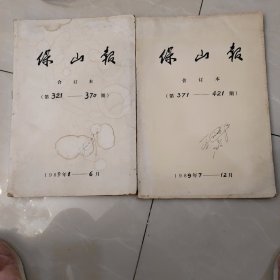 保山报
合订本
(第321——370期)
1989年1——6月
保山报
合订本
(第371——421期)
1989年7——12月